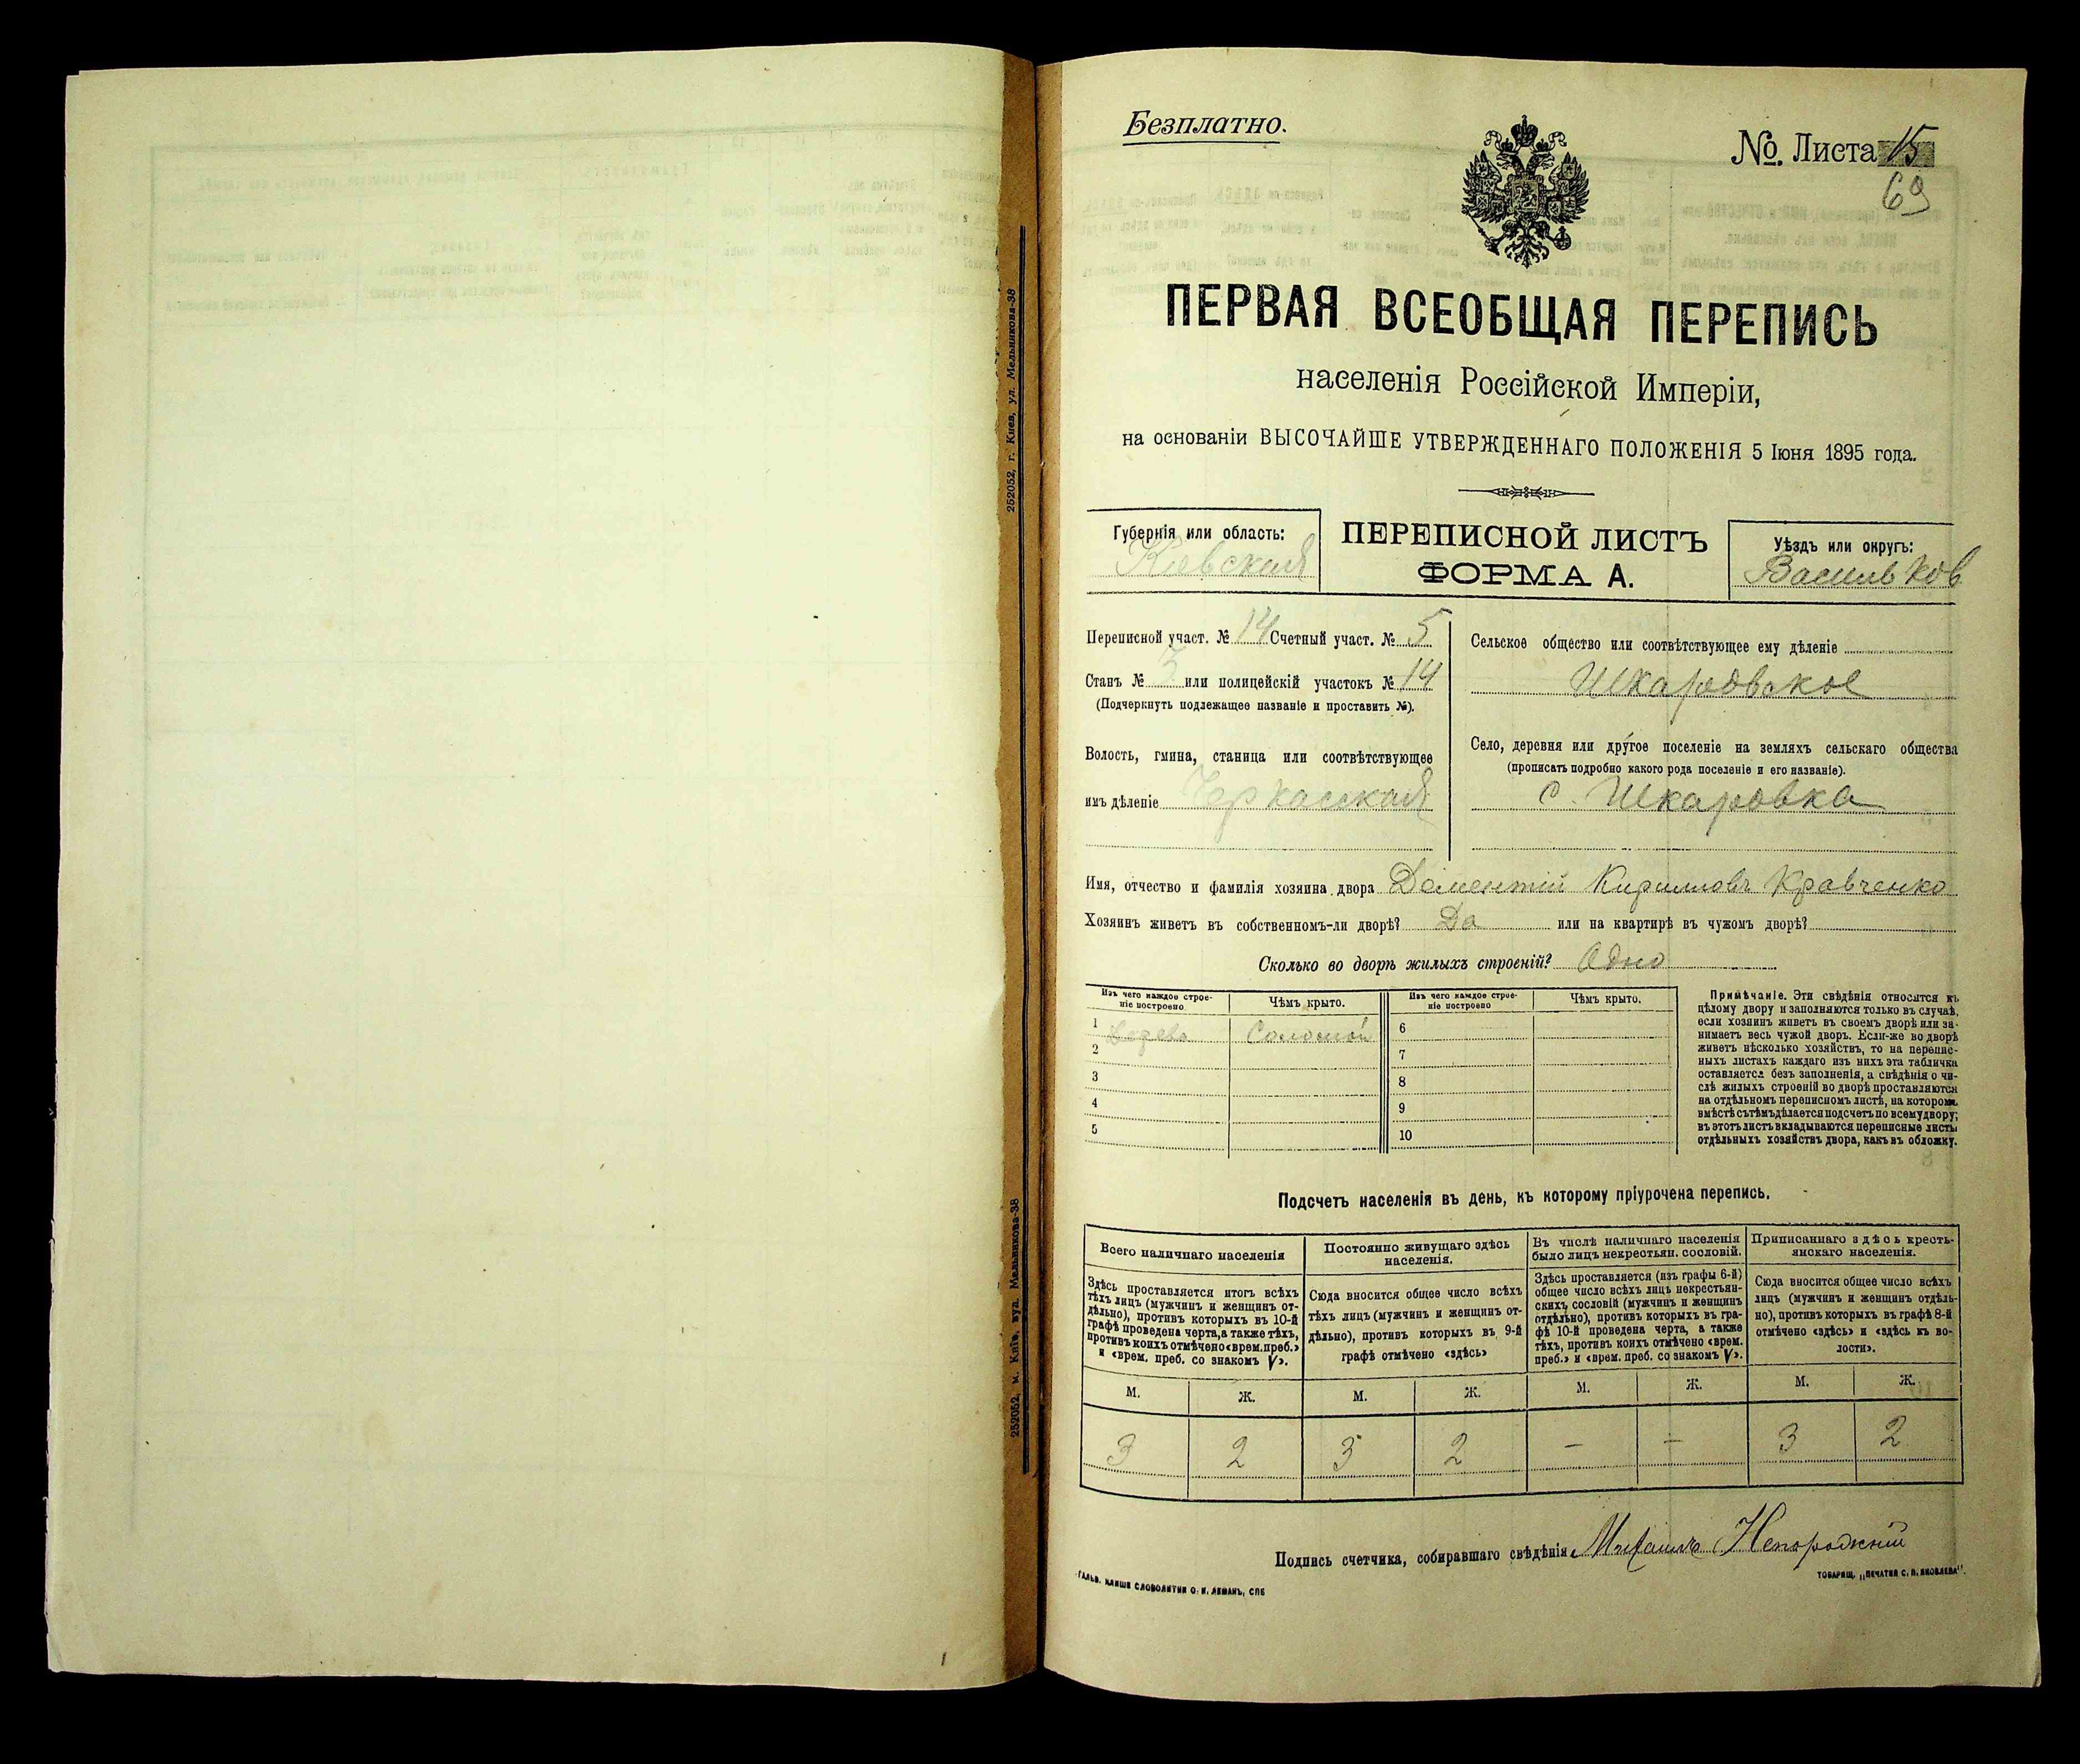 252052, г. Киев, ул. Мельникова-38
252052, м. Київ, вул. Мельникова-38
Безплатно.
№. Листа 15
69
ПЕРВАЯ ВСЕОБЩАЯ ПЕРЕПИСЬ
населенія Россійской Имперіи,
на основаніи ВЫСОЧАЙШЕ УТВЕРЖДЕННАГО ПОЛОЖЕНІЯ 5 Іюня 1895 года.
Губернія или область:
Кіевская
ПЕРЕПИСНОЙ ЛИСТЪ
ФОРМА А.
Уѣздъ или округъ:
Васильков
Переписной участ. № 14 Счетный участ. № 5
Станъ № 3 или полицейскій участокъ № 14
(Подчеркнуть подлежащее названіе и проставить №).
Волость, гмина, станица или соотвѣтствующее
имъ дѣленіе Черкасская
Сельское общество или соотвѣтствующее ему дѣленіе
Шкаровское
Село, деревня или другое поселеніе на земляхъ сельскаго общества
(прописать подробно какого рода поселеніе и его названіе).
с. Шкаровка
Имя, отчество и фамилія хозяина двора Дементій Кирилловъ Кравченко
Хозяинъ живетъ въ собственномъ-ли дворѣ? Да или на квартирѣ въ чужомъ дворѣ?
Сколько во дворѣ жилыхъ строеній? Одно
Изъ чего каждое строе-
ніе построено
Чѣмъ крыто.
Изъ чего каждое строе-
ніе построено
Чѣмъ крыто.
1 Дерево Соломой 6
2 7
3 8
4 9
5 10
Примѣчаніе. Эти свѣдѣнія относятся къ
цѣлому двору и заполняются только въ случаѣ,
если хозяинъ живетъ въ своемъ дворѣ или за-
нимаетъ весь чужой дворъ. Если-же во дворѣ
живетъ нѣсколько хозяйствъ, то на перепис-
ныхъ листахъ каждаго изъ нихъ эта табличка
оставляется безъ заполненія, а свѣдѣнія о чи-
слѣ жилыхъ строеній во дворѣ проставляются
на отдѣльномъ переписномъ листѣ, на которомъ
вмѣстѣ съ тѣмъ дѣлается подсчетъ по всему двору;
въ этотъ листъ вкладываются переписные листы
отдѣльныхъ хозяйствъ двора, какъ въ обложку.
Подсчетъ населенія въ день, къ которому пріурочена перепись.
Всего наличнаго населенія
Здѣсь проставляется итогъ всѣхъ
тѣхъ лицъ (мужчинъ и женщинъ от-
дѣльно), противъ которыхъ въ 10-й
графѣ проведена черта, а также тѣхъ,
противъ коихъ отмѣчено «врем. преб.»
и «врем. преб. со знакомъ V».
Постоянно живущаго здѣсь
населенія.
Сюда вносится общее число всѣхъ
тѣхъ лицъ (мужчинъ и женщинъ от-
дѣльно), противъ которыхъ въ 9-й
графѣ отмѣчено «здѣсь»
Въ числѣ наличнаго населенія
было лицъ некрестьян. сословій.
Здѣсь проставляется (изъ графы 6-й)
общее число всѣхъ лицъ некрестьян-
скихъ сословій (мужчинъ и женщинъ
отдѣльно), противъ которыхъ въ гра-
фѣ 10-й проведена черта, а также
тѣхъ, противъ коихъ отмѣчено «врем.
преб.» и «врем. преб. со знакомъ V».
Приписаннаго здѣсь кресть-
янскаго населенія.
Сюда вносится общее число всѣхъ
лицъ (мужчинъ и женщинъ отдѣль-
но), противъ которыхъ въ графѣ 8-й
отмѣчено «здѣсь» и «здѣсь въ во-
лости».
М. Ж. М. Ж. М. Ж. М. Ж.
3 2 3 2 — — 3 2
Подпись счетчика, собиравшаго свѣдѣнія Михаилъ
ГАЛЬВ. КЛИШЕ СЛОВОЛИТНИ О. И. ЛЕМАНЪ, СПБ
ТОВАРИЩ. „ПЕЧАТНЯ С. П. ЯКОВЛЕВА“.